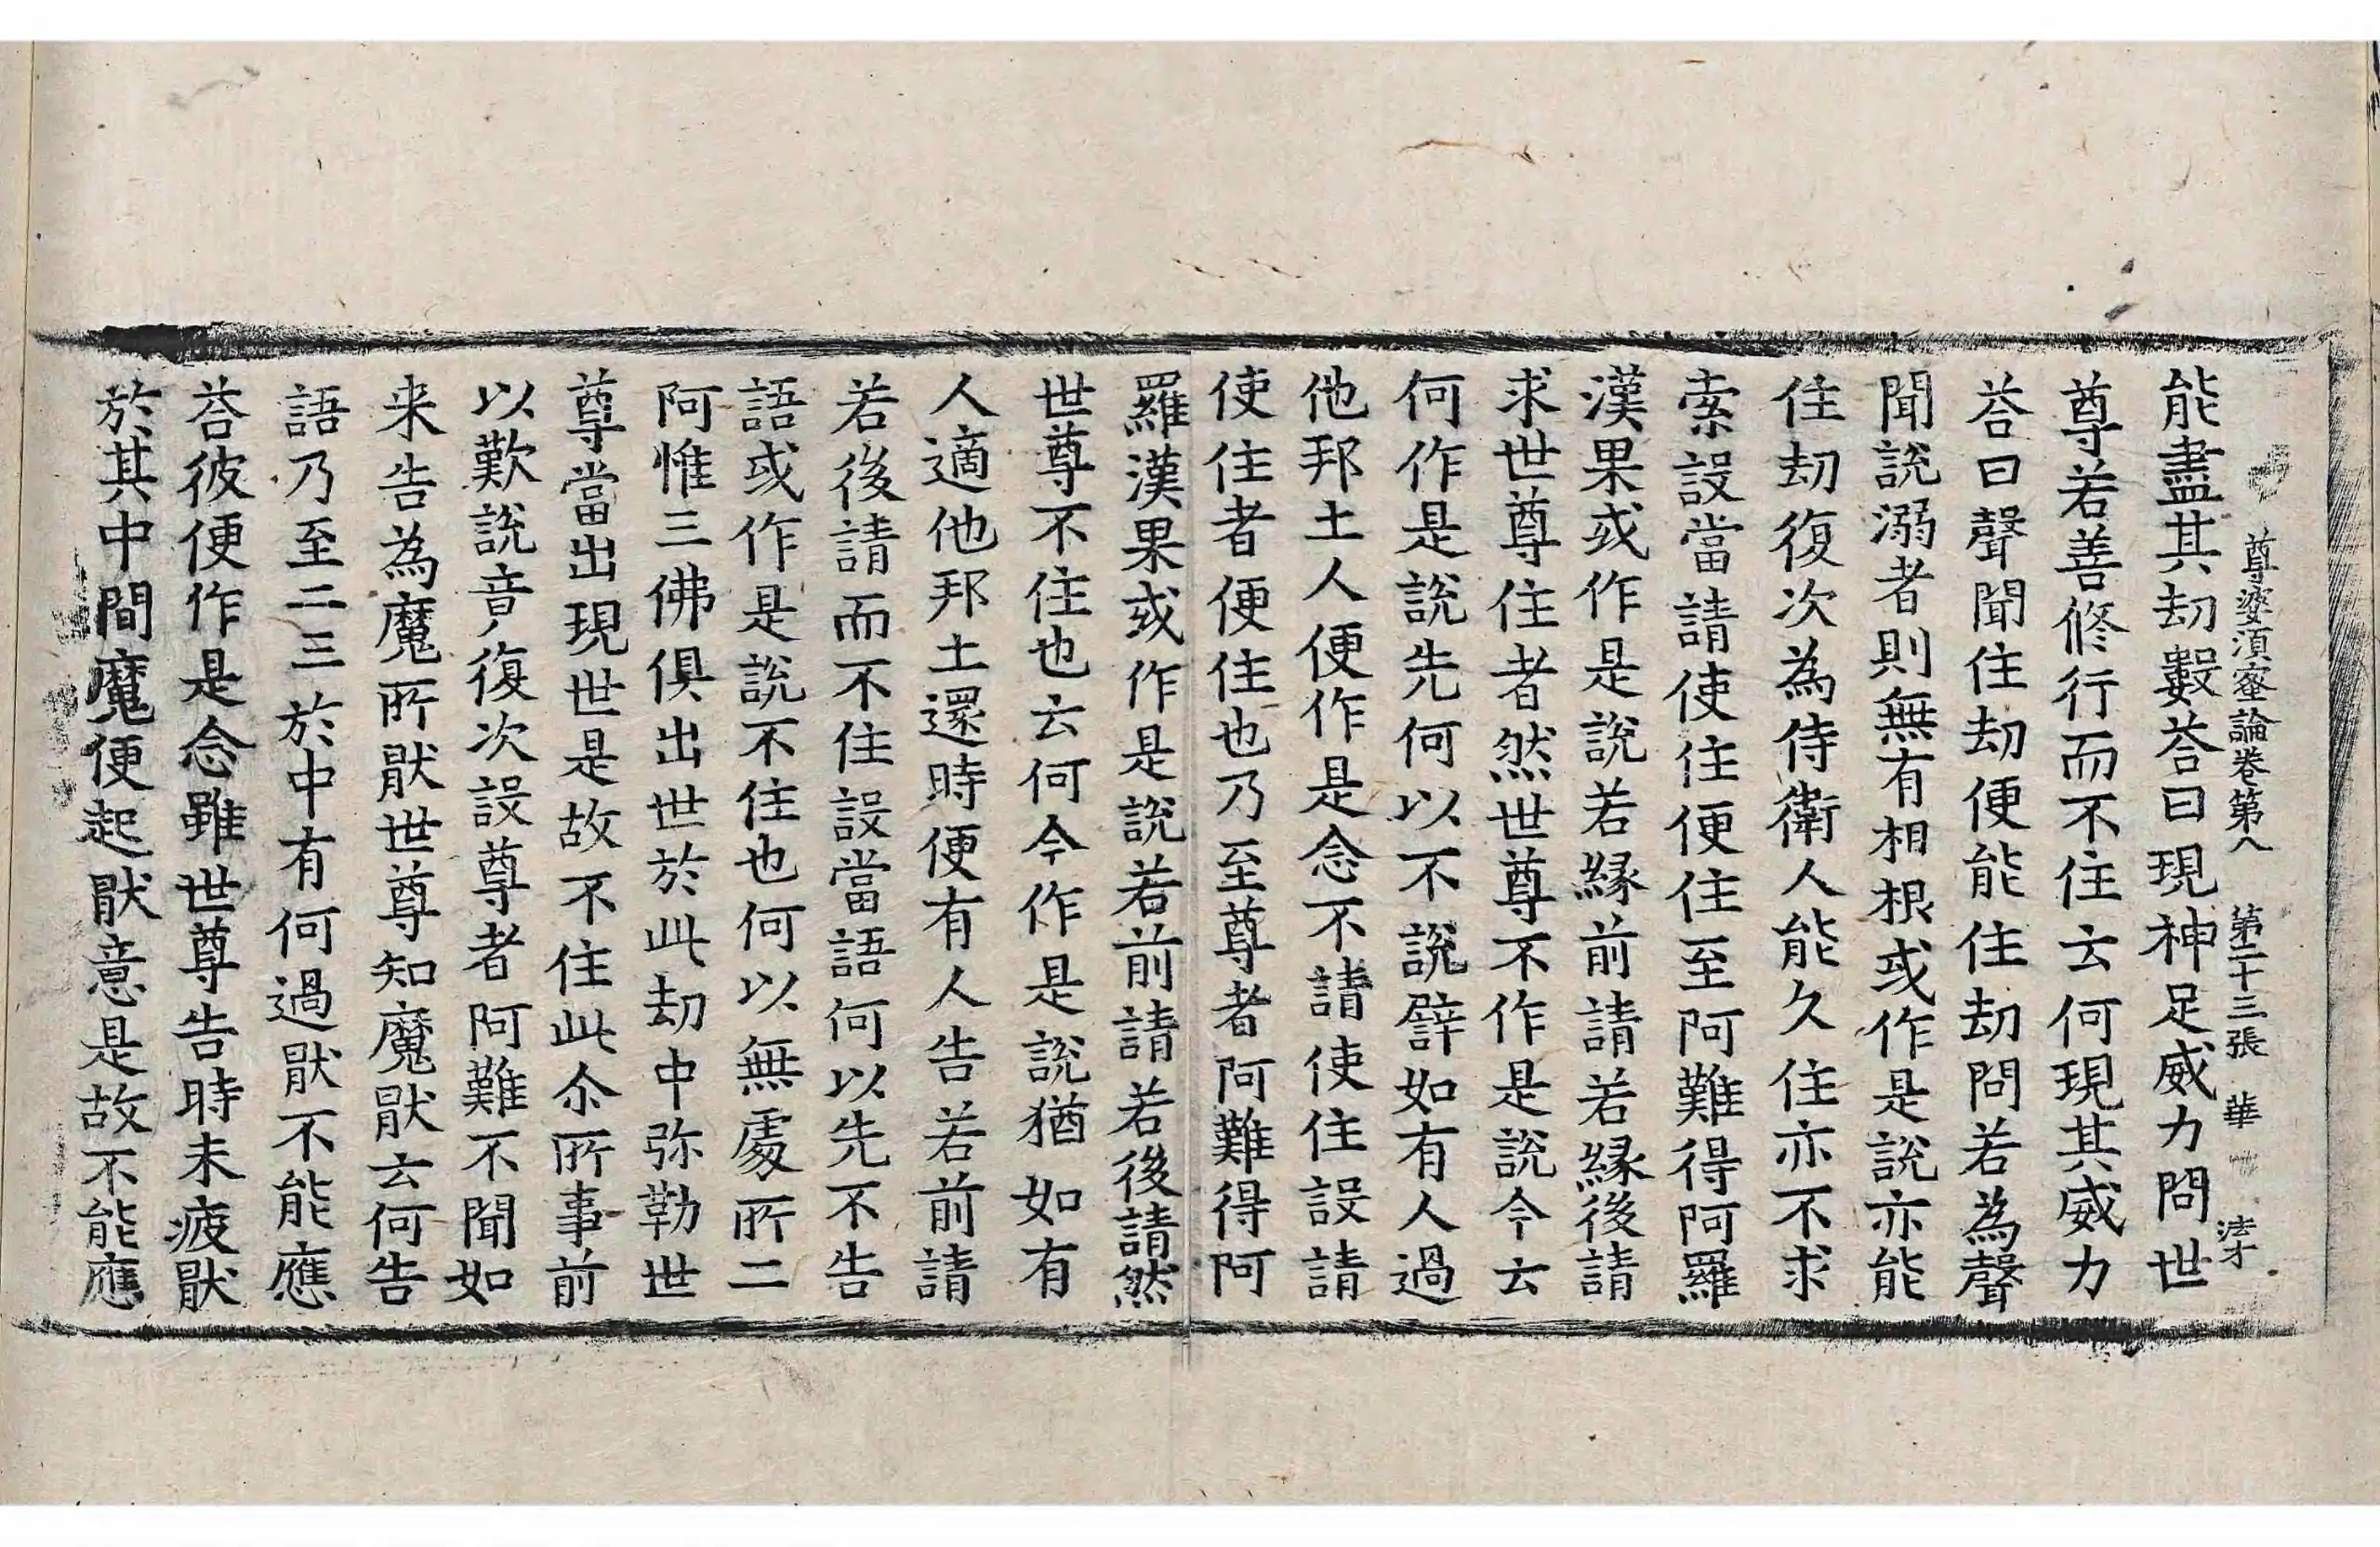 尊婆須蜜論卷第八 第二十三張 華
能盡其劫數荅曰現神足威力問世
尊若善修行而不住云何現其威力
荅曰聲聞住劫便能住劫問若為聲
聞說溺者則無有相根或作是說亦能
住劫復次為侍衛人能久住亦不求
索設當請使住便住至阿難得阿羅
漢果或作是說若緣前請若緣後請
求世尊住者然世尊不作是說今云
何作是說先何以不說譬如有人過
他邦土人便作是念不請使住設請
使住者便住也乃至尊者阿難得阿
羅漢果或作是說若前請若後請然
世尊不住也云何今作是說猶如有
人適他邦土還時便有人告若前請
若後請而不住設當語何以先不告
語或作是說不住也何以無處所二
阿惟三佛俱出世於此劫中弥勒世
尊當出現世是故不住此尒所事前
以歎說竟復次設尊者阿難不聞如
来告為魔所猒世尊知魔猒云何告
語乃至二三於中有何過猒不能應
荅彼便作是念雖世尊告時未疲猒
於其中間魔便起猒意是故不能應